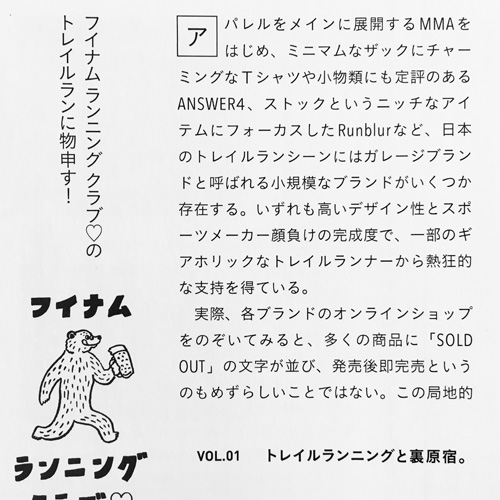 フイナム ランニング クラブ♡の
トレイルランに物申す！
アパレルをメインに展開するMMAを
はじめ、ミニマムなザックにチャー
ミングなTシャツや小物類にも定評のある
ANSWER4、ストックというニッチなアイ
テムにフォーカスしたRunblurなど、日本
のトレイルランシーンにはガレージブラン
ドと呼ばれる小規模なブランドがいくつか
存在する。いずれも高いデザイン性とスポ
ーツメーカー顔負けの完成度で、一部のギ
アホリックなトレイルランナーから熱狂的
な支持を得ている。
実際、各ブランドのオンラインショップ
をのぞいてみると、多くの商品に「SOLD
OUT」の文字が並び、発売後即完売という
のもめずらしいことではない。この局地的
フイナム
ランニング
クラブ♡
VOL.01 トレイルランニングと裏原宿。